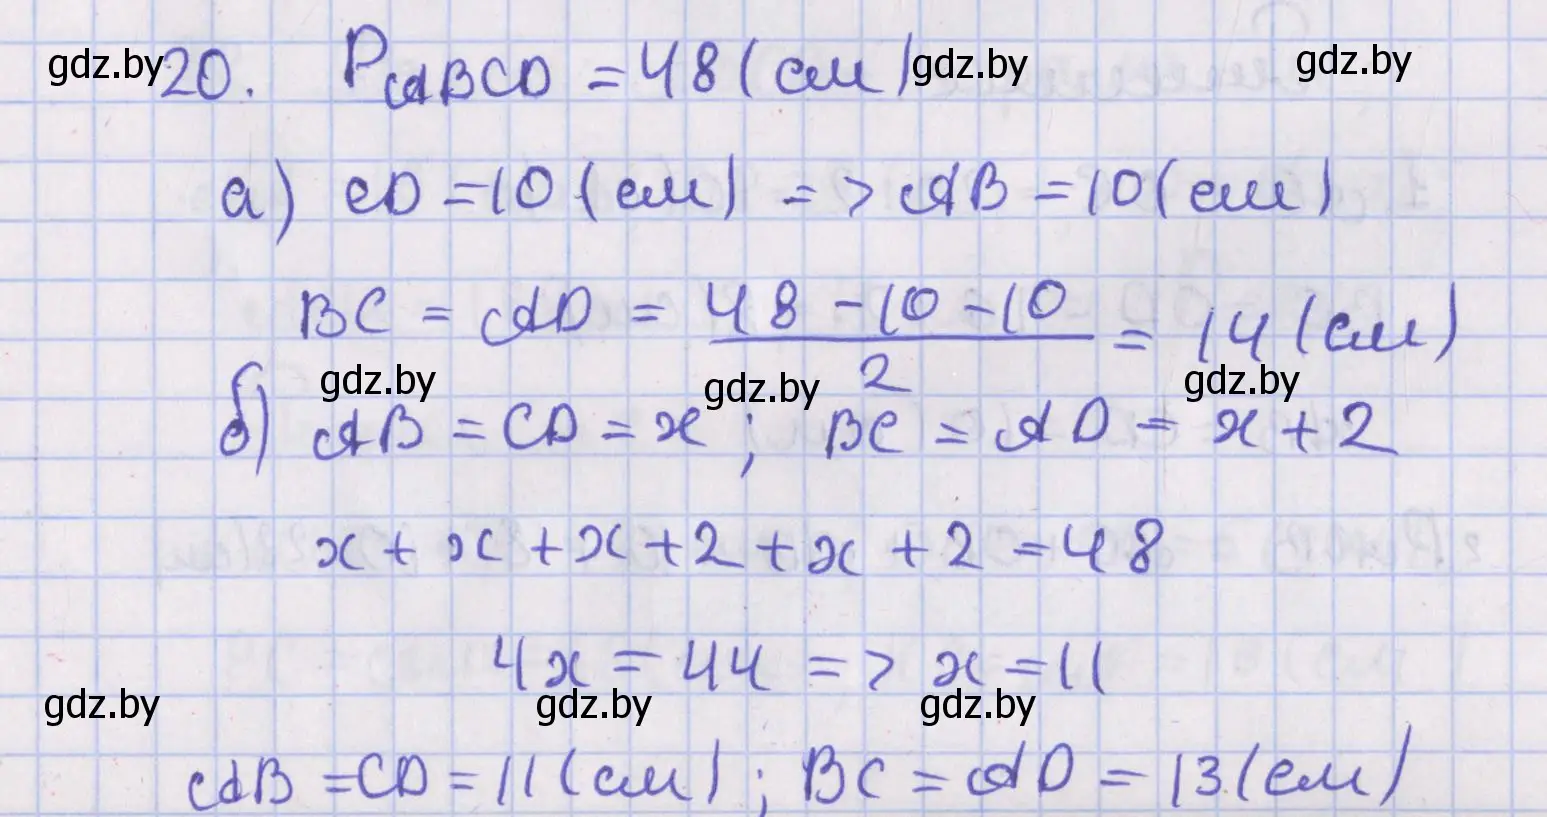 20. P ABCD = 48 (см) gdz.by gdz.by gdz.by
а) CD = 10 (см) => AB = 10 (см)
BC = AD = (48 - 10 - 10)/2 = 14 (см)
gdz.by gdz.by gdz.by
б) AB = CD = x; BC = AD = x + 2
x + x + x + 2 + x + 2 = 48
4x = 44 => x = 11
gdz.by gdz.by gdz.by
AB = CD = 11 (см); BC = AD = 13 (см)